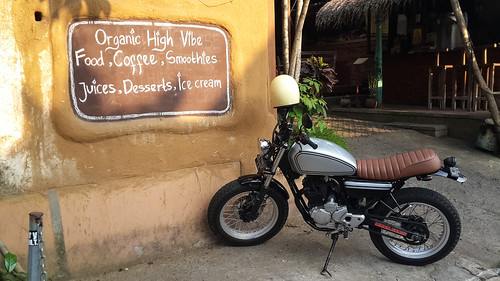 Organic High Vibe
Food, Coffee, Smoothies
Juices, Desserts, Ice cream